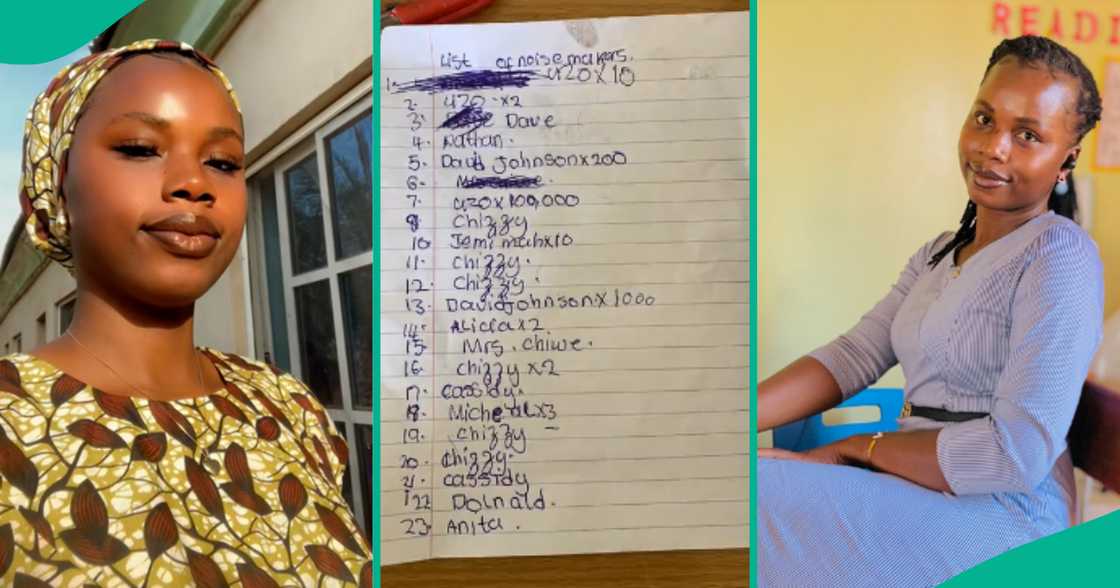 READI
List of noise makers.
1. 420 x 10
2. 420 - x2
3. Dave
4. Nathan.
5. David Johnson x 200
6.
7. 420 x 100,000
8. Chizzy
10. Jemimah x 10
11. Chizzy.
12. Chizzy.
13. David johnson x 1000
14. Alicia x 2.
15. Mrs. Chiwe.
16. Chizzy x 2
17. Cassidy.
18. Micheal x 3
19. Chizzy -
20. Chizzy.
21. Cassidy
22 Dolnald.
23. Anita.